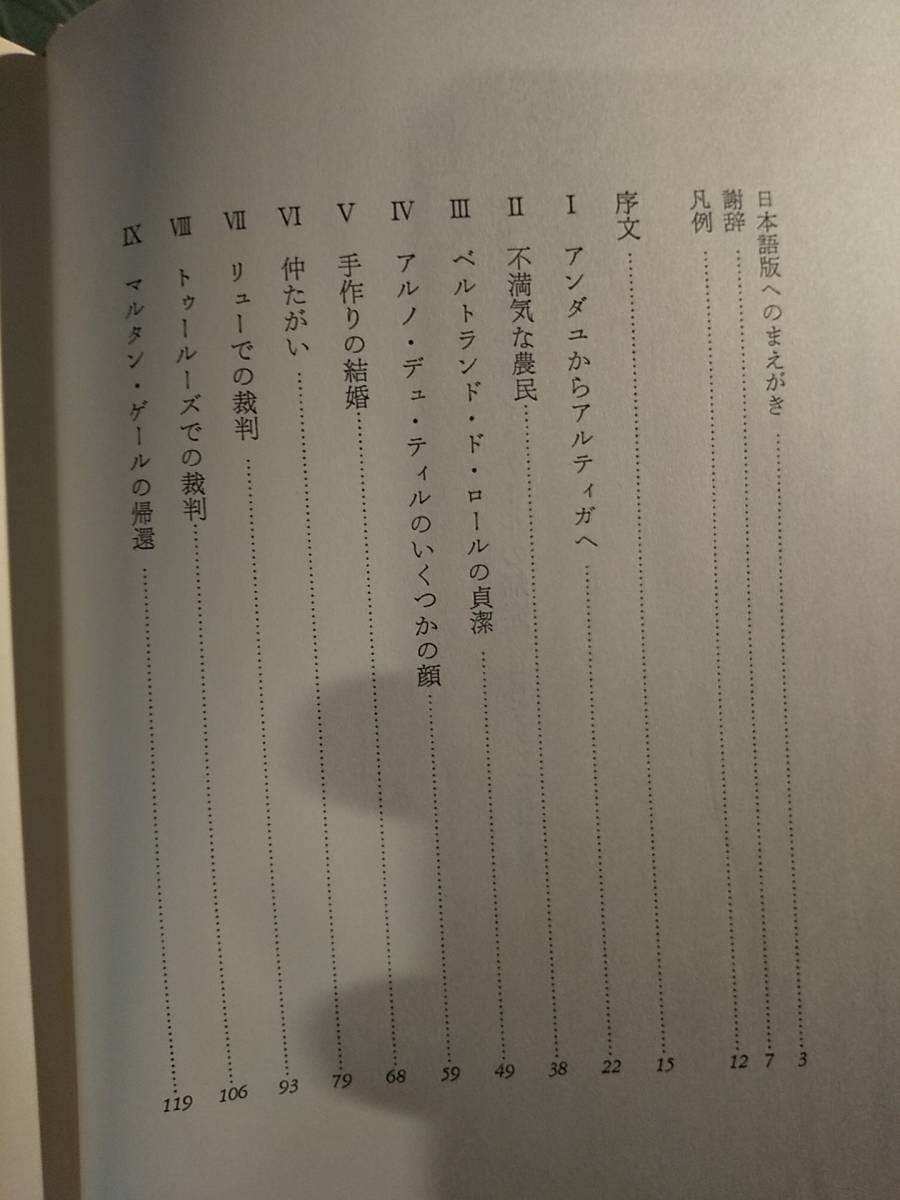 日本語版へのまえがき……3
謝辞……7
凡例……12
序文……15
Ⅰ アンダユからアルティガへ……22
Ⅱ 不満気な農民……38
Ⅲ ベルトランド・ド・ロールの貞潔……49
Ⅳ アルノ・デュ・ティルのいくつかの顔……59
Ⅴ 手作りの結婚……68
Ⅵ 仲たがい……79
Ⅶ リューでの裁判……93
Ⅷ トゥールーズでの裁判……106
Ⅸ マルタン・ゲールの帰還……119